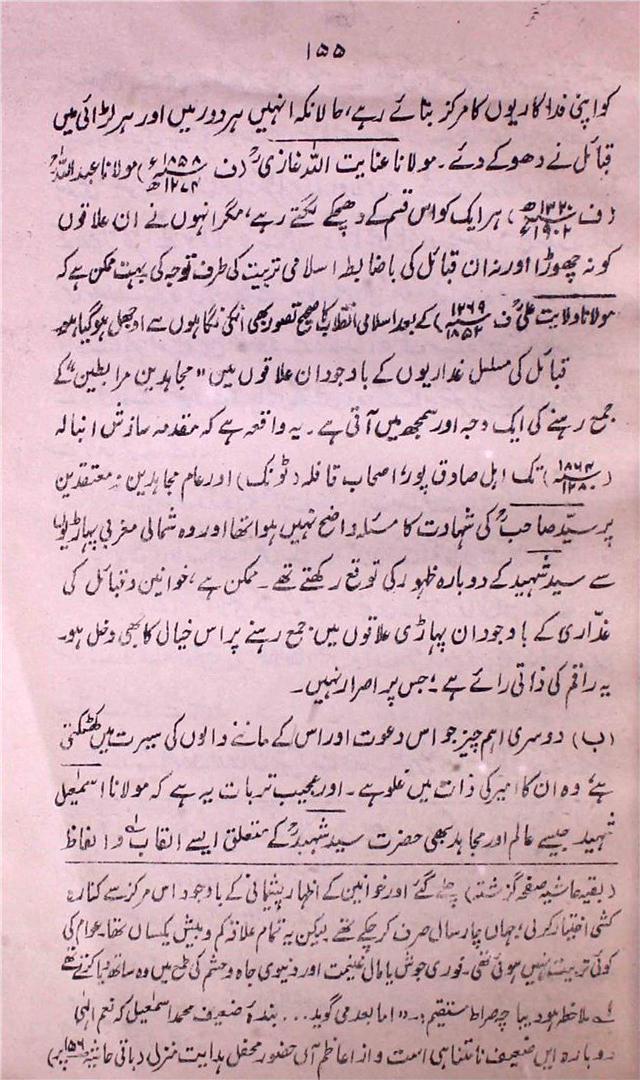 ۱۵۵
کو اپنی فدا کاریوں کا مرکز بنائے رہے، حالانکہ انہیں ہر دور میں اور ہر لڑائی میں
قبائل نے دھوکے دئے۔ مولانا عنایت اللہ غازیؒ (ف ۱۸۵۸ء ۱۲۷۴ھ) مولانا عبد اللہؒ
(ف ۱۳۲۰ھ ۱۹۰۲ء) ہر ایک کو اس قسم کے دھچکے لگتے رہے، مگر انہوں نے ان علاقوں
کو نہ چھوڑا اور نہ ان قبائل کی باضابطہ اسلامی تربیت کی طرف توجہ کی بہت ممکن ہے کہ
مولانا ولایت علیؒ (ف ۱۲۶۹ ۱۸۵۲) کے بعد اسلامی انقلاب کا صحیح تصور بھی انکی نگاہوں سے اوجھل ہو گیا ہو۔
قبائل کی مسلسل غداریوں کے باوجود ان علاقوں میں "مجاہدین مرابطین" کے
جمع رہنے کی ایک وجہ اور سمجھ میں آتی ہے۔ یہ واقعہ ہے کہ مقدمہ سازش انبالہ
(۱۸۶۴ ۱۲۸۰) تک اہل صادق پور، اصحاب قافلہ (ٹونک) اور عام مجاہدین و معتقدین
پر سیّد صاحبؒ کی شہادت کا مسئلہ واضح نہیں ہوا تھا اور وہ شمالی مغربی پہاڑیوں
سے سید شہید کے دوبارہ ظہور کی توقع رکھتے تھے۔ ممکن ہے، خوانین و قبائل کی
غدّاری کے باوجود ان پہاڑی علاقوں میں جمع رہنے پر اس خیال کا بھی دخل ہو۔
یہ راقم کی ذاتی رائے ہے، جس پر اصرار نہیں۔
(ب) دوسری اہم چیز جو اس دعوت اور اس کے ماننے والوں کی سیرت میں کھٹکتی
ہے، وہ ان کا امیر کی ذات میں غلو ہے۔ اور عجیب تر بات یہ ہے کہ مولانا اسمٰعیل
شہید جیسے عالم اور مجاہد بھی حضرت سید شہیدؒ کے متعلق ایسے القاب و الفاظ
(بقیہ حاشیہ صفحہ گزشتہ) چلے گئے اور خوانین کے اظہار پشیمانی کے باوجود اس مرکز سے کنارہ
کشی اختیار کر لی، جہاں چار سال صرف کر چکے تھے لیکن یہ تمام علاقہ کم و بیش یکساں تھا۔ عوام کی
کوئی تربیت نہیں ہوئی تھی۔ فوری جوش یا مال غنیمت اور دنیوی جاہ و حشم کی طمع میں وہ ساتھ دیا کرتے تھے
۱؎ ملاحظہ ہو دیباچہ صراط مستقیم:۔ "اما بعد می گوید... بندۂ ضعیف محمد اسمٰعیل کہ نعم الٰہی
دوبارہ ایں ضعیف نامتناہی است و از اعاظم آں حضور محفل ہدایت منزل (باقی حاشیہ ۱۵۶ پر)